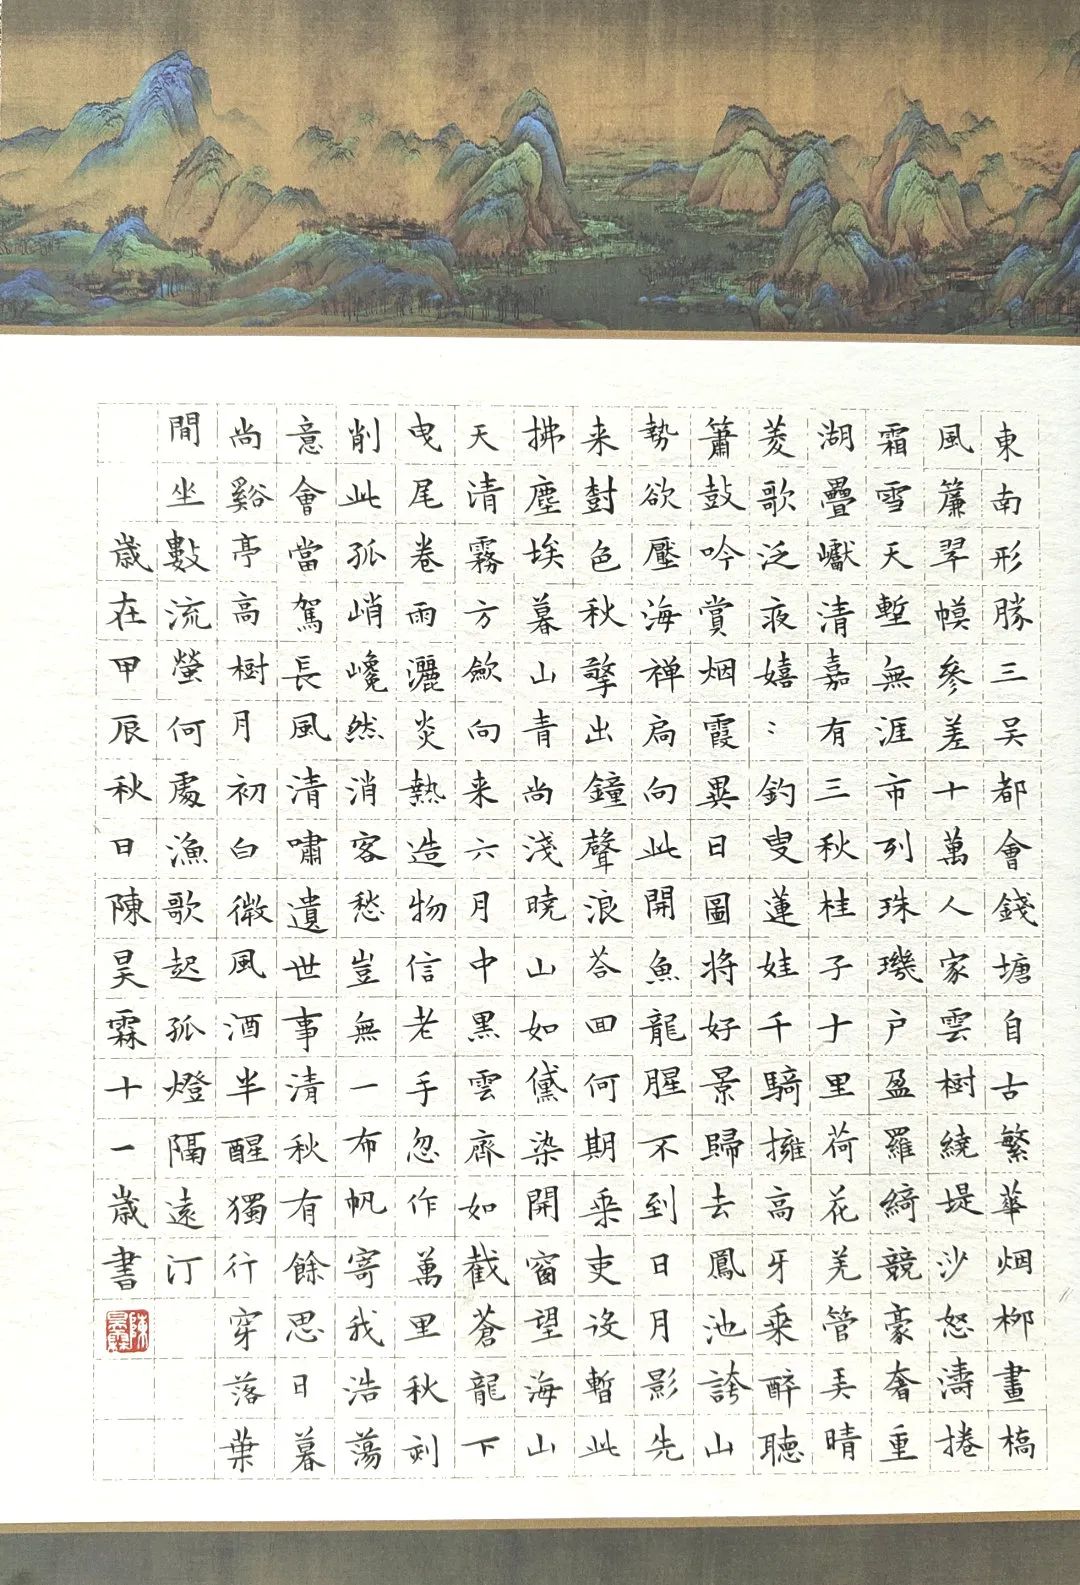 東南形勝三吴都會錢塘自古繁華烟柳畫橋
風簾翠幙參差十萬人家雲樹繞堤沙怒濤捲
霜雪天塹無涯市列珠璣户盈羅綺競豪奢重
湖疊巘清嘉有三秋桂子十里荷花羌管弄晴
菱歌泛夜嬉：釣叟蓮娃千騎擁高牙乘醉聽
簫鼓吟賞烟霞異日圖將好景歸去鳳池誇山
勢欲壓海禅扃向此開魚龍腥不到日月影先
来樹色秋擎出鐘聲浪荅回何期乘吏役暫此
拂塵埃暮山青尚淺曉山如黛染開窗望海山
天清霧方斂向来六月中黑雲齊如截蒼龍下
曳尾卷雨灑炎熱造物信老手忽作萬里秋剡
削此孤峭巉然消客愁豈無一布帆寄我浩蕩
意會當駕長風清嘯遺世事清秋有餘思日暮
尚谿亭高樹月初白微風酒半醒獨行穿落葉
閒坐數流螢何處漁歌起孤燈隔遠汀
歲在甲辰秋日陳昊霖十一歲書
陳昊霖